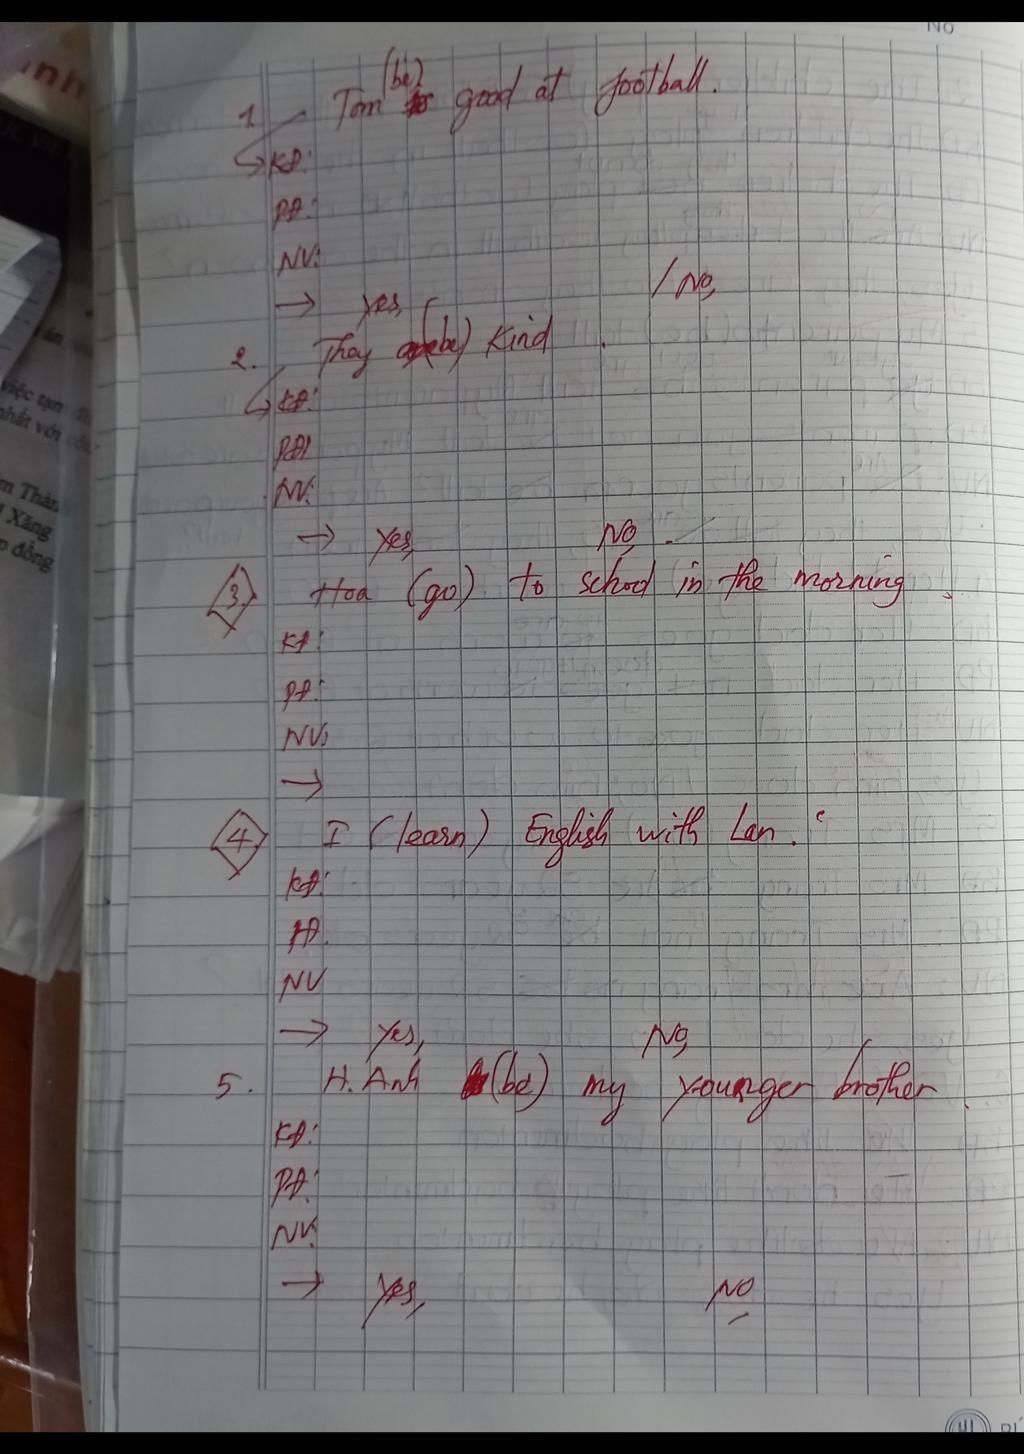 No
1. Tom (be) good at football.
KĐ:
PĐ:
NV:
→ Yes, / No,
2. They (be) kind.
KĐ:
PĐ:
NV:
→ Yes, No,
3 Hoa (go) to school in the morning.
KĐ:
PĐ:
NV:
→
4 I (learn) English with Lan.
KĐ:
PĐ.
NV
→ Yes, No,
5. H. Anh (be) my younger brother.
KĐ:
PĐ:
NV:
→ Yes, No